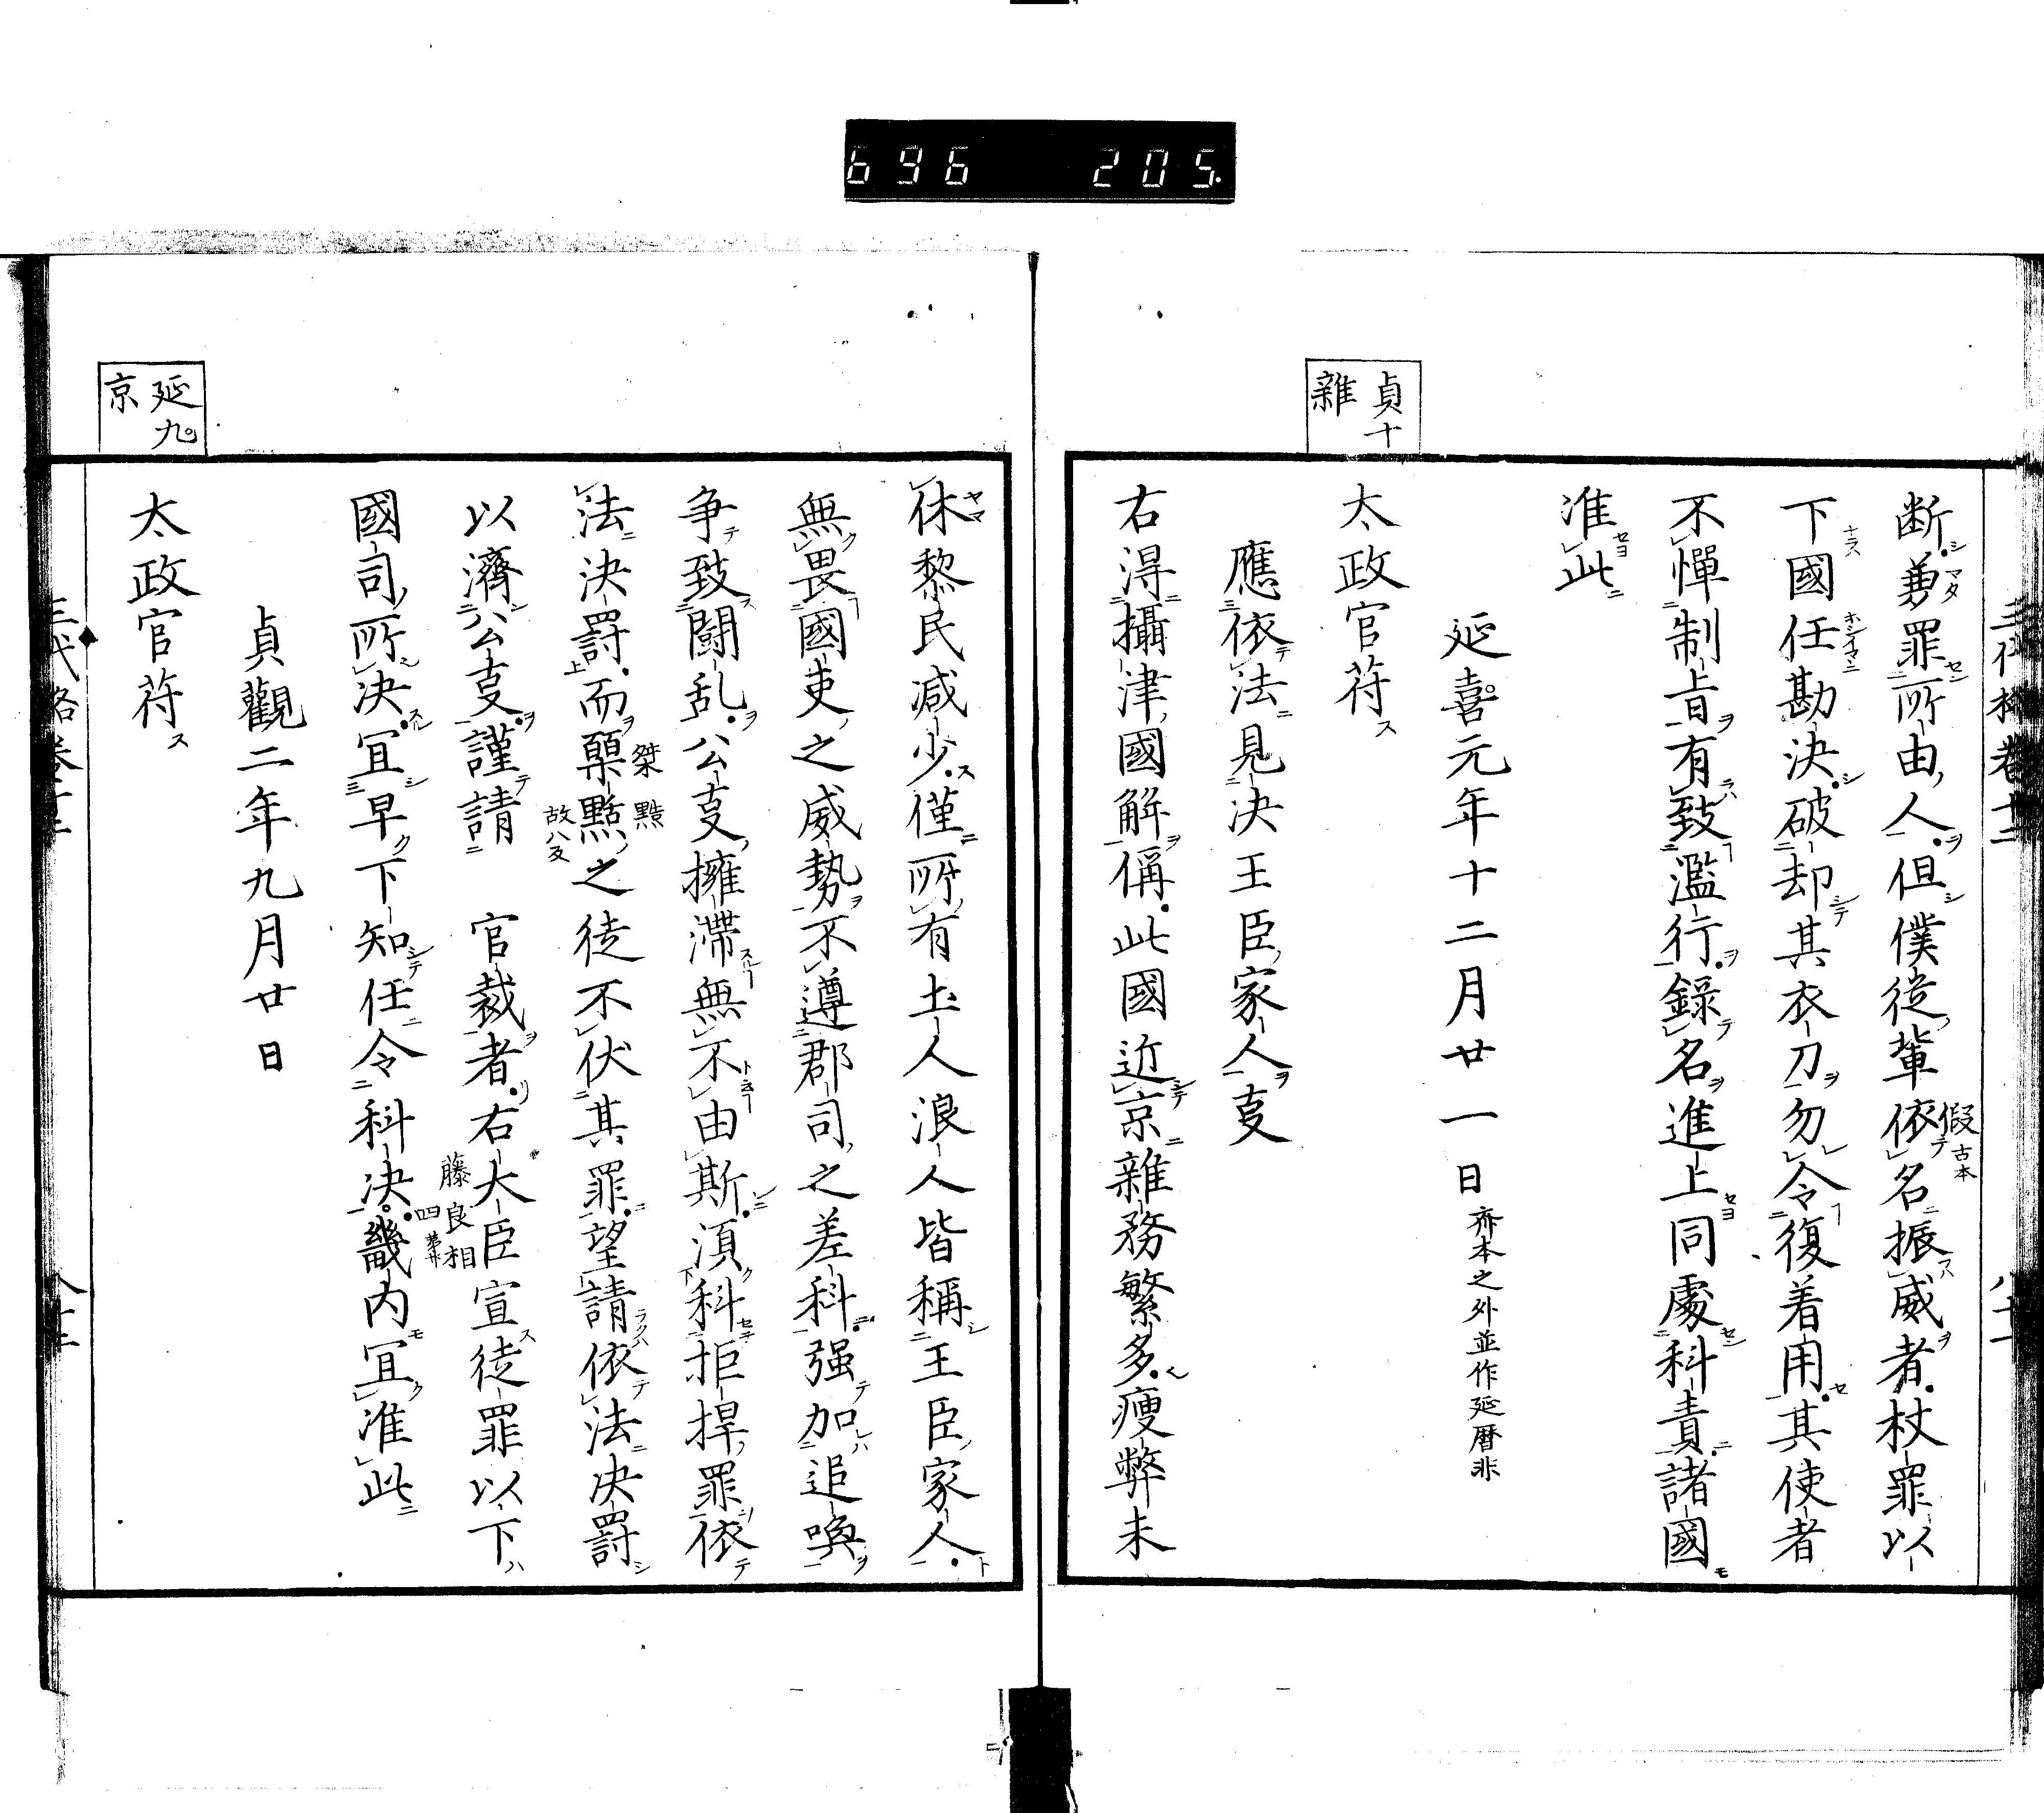 696 205.
貞十
雜
断兼罪所由人但僕従輩依名振威者杖罪以
假古本
下國任勘決破却其衣刀勿令復着用其使者
不憚制旨有致濫行錄名進上同處科責諸國
准此
延喜元年十二月廿一日 齊本之外並作延暦非
太政官苻
應依法見決王臣家人㕝
右得攝津國解偁此國近京雜務繁多瘦弊未
休黎民减少僅所有土人浪人皆稱王臣家人
無畏國吏之威勢不遵郡司之差科强加追喚
争致鬪乱公㕝擁滞無不由斯湏科拒捍罪依
法決罸而槀㸃之徒不伏其罪望請依法決罸
桀黠
故八反
以濟公㕝謹請 官裁者右大臣宣徒罪以下
藤良相
四
國司所決宜早下知任令科決畿内宜准此
貞觀二年九月廿日
延九
京
太政官苻